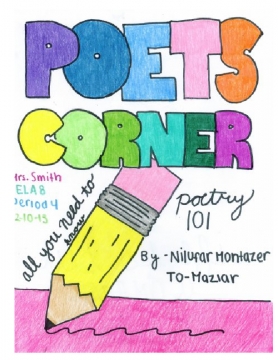 POETS
CORNER
rs. Smith
ELA 8
eriod 4
2-10-15
all you need to
know
poetry
101
By - Nilufar Montazer
To - Maziar